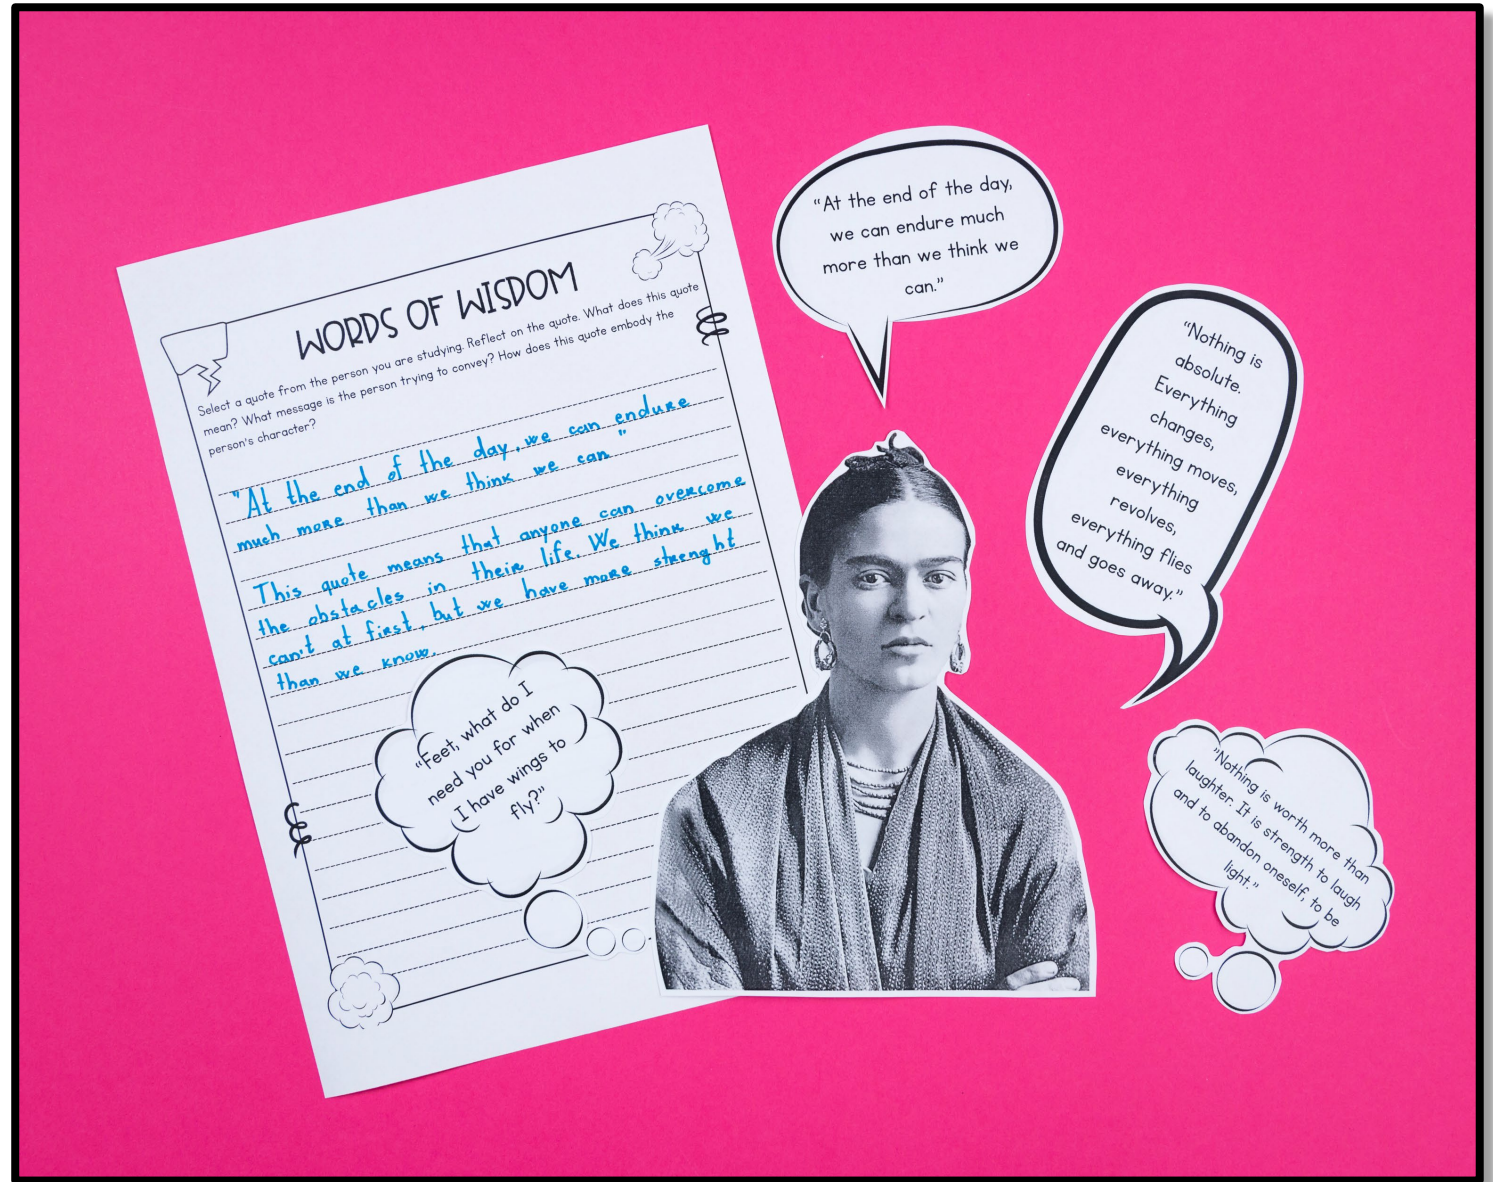 WORDS OF WISDOM
Select a quote from the person you are studying. Reflect on the quote. What does this quote
mean? What message is the person trying to convey? How does this quote embody the
person's character?
"At the end of the day, we can endure
much more than we think we can"
This quote means that anyone can overcome
the obstacles in their life. We think we
can't at first, but we have more strenght
than we know.
"Feet, what do I
need you for when
I have wings to
fly?"
"At the end of the day,
we can endure much
more than we think we
can."
"Nothing is
absolute.
Everything
changes,
everything moves,
everything
revolves,
everything flies
and goes away."
"Nothing is worth more than
laughter. It is strength to laugh
and to abandon oneself, to be
light."